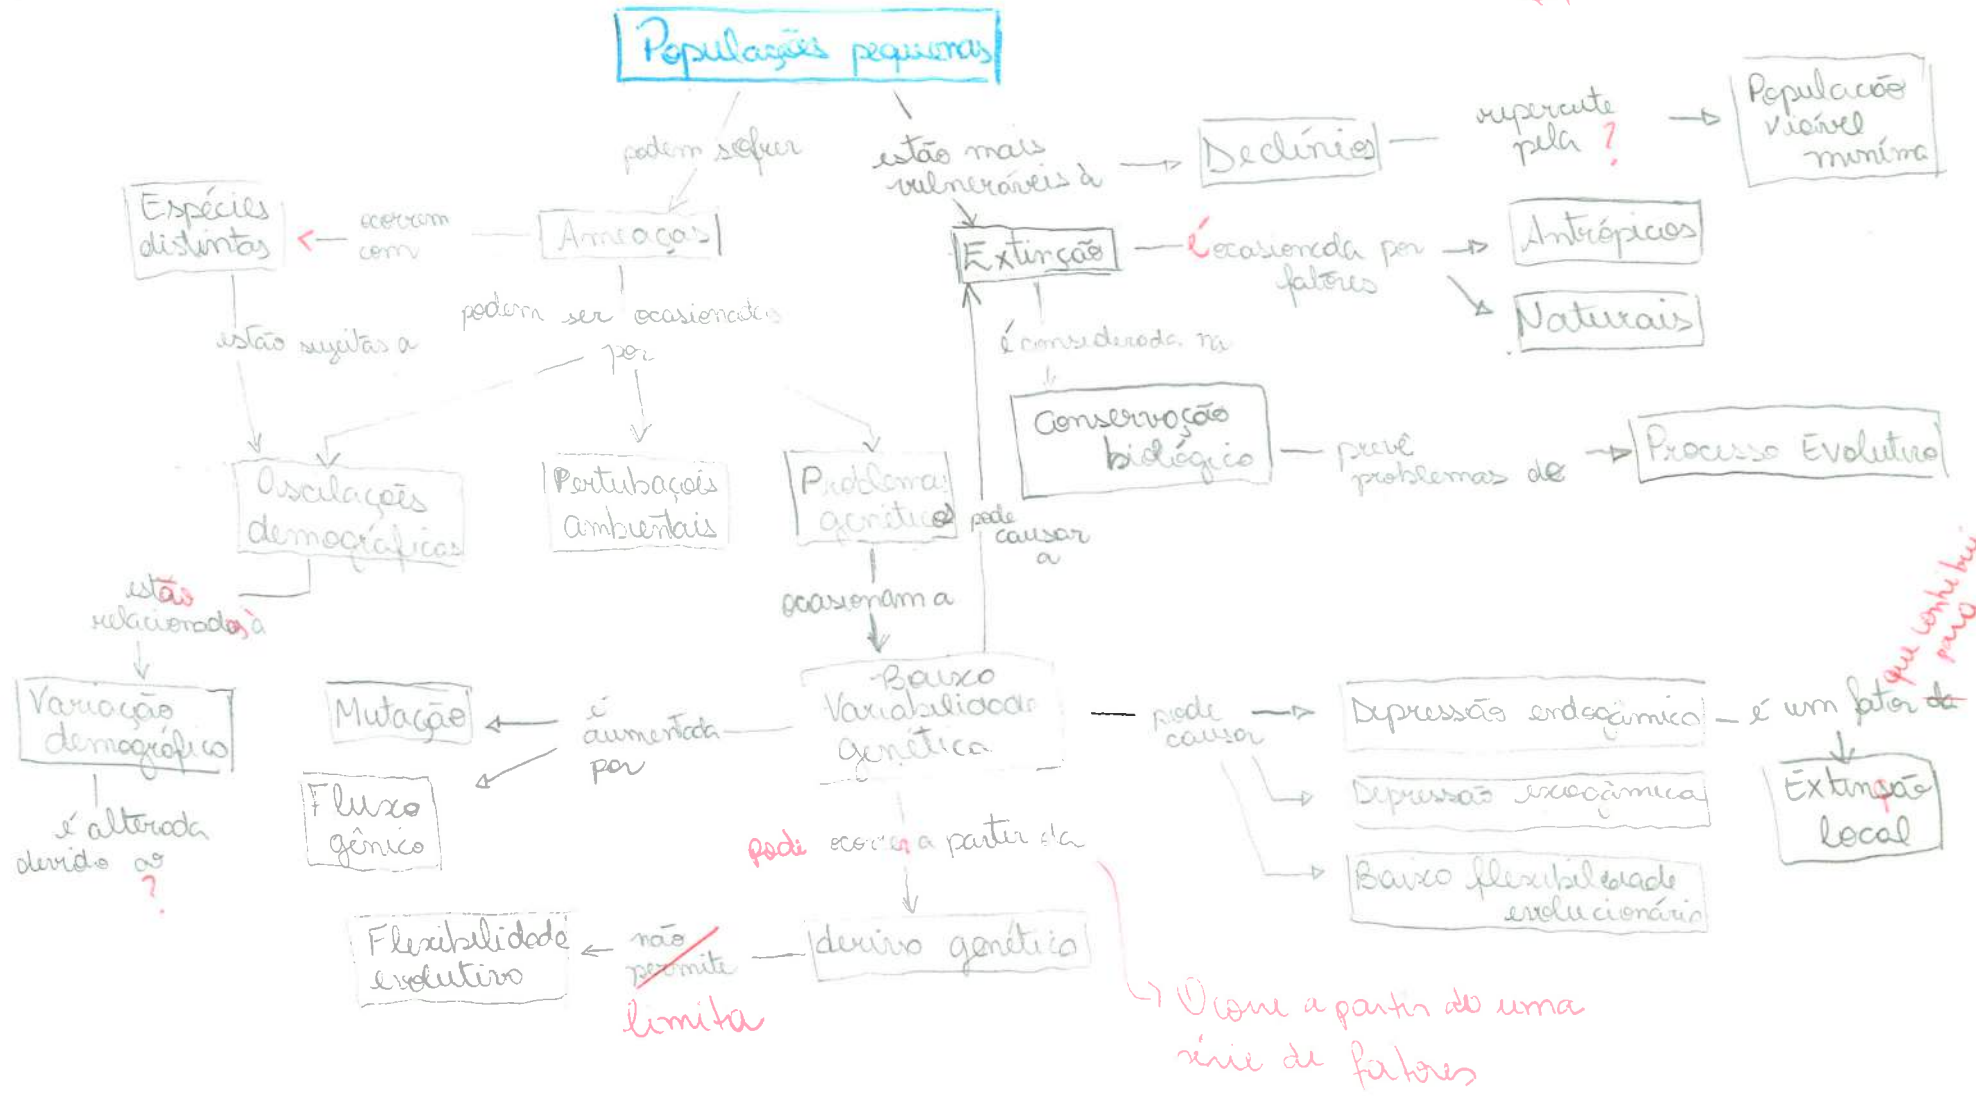 Populações pequenas
podem sofrer
estão mais
vulneráveis à
Declínios
repercute
pela ?
População
viável
miníma
Espécies
distintas
ocorrem
com
Ameaças
Extinção
é ocasionada por
fatores
Antrópicos
Naturais
estão sujeitas a
podem ser ocasionadas
por
é considerada na
Conservação
biológica
prevê
problemas de
Processo Evolutivo
Oscilações
demográficas
Pertubações
ambientais
Problemas
genéticos
pode
causar
a
estão
relacionadas à
ocasionam a
Variação
demográfica
Mutação
é
aumentada
por
Baixa
Variabilidade
genética
pode
causar
Depressão endogâmica
é um fator da
que contribui
para
Depressão exogâmica
Extinção
local
Fluxo
gênico
é alterada
devido ao
?
pode ocorrer a partir da
Baixa flexibilidade
evolucionária
Flexibilidade
evolutiva
não
permite
limita
deriva genética
Ocorre a partir de uma
série de fatores